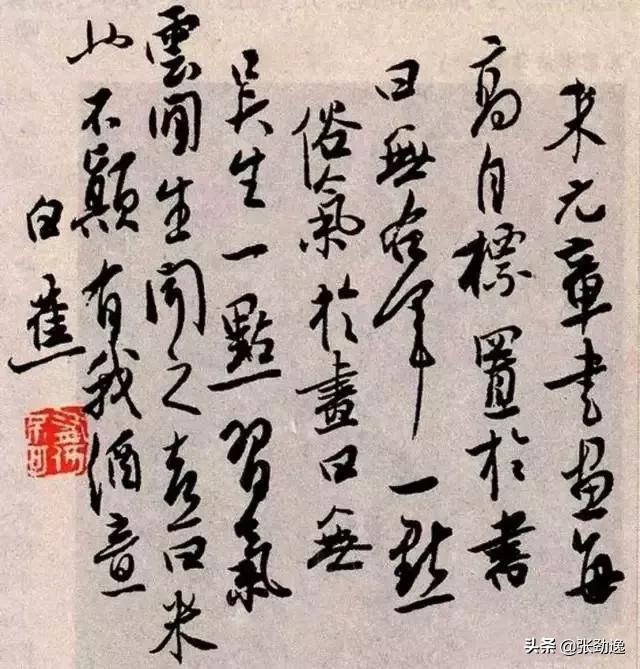 米元章書画每
高自標置於書
曰無右軍一點
俗氣於畫曰無
吳生一點習氣
雲間生聞之喜曰米
也不顛有我酒意
白蕉
头条 @张劲逸